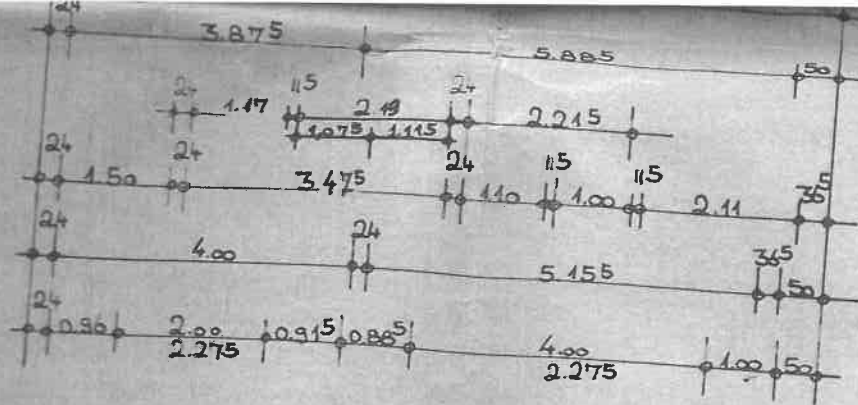 24 3.87⁵ 5.885 50
24 1.17 11⁵ 2.19 24 2.21⁵
1.07⁵ 1.11⁵
24 1.50 24 3.47⁵ 24 1.10 11⁵ 1.00 11⁵ 2.11 36⁵
24 4.00 24 5.15⁵ 36⁵ 50
24 0.96 2.00 0.91⁵ 0.88⁵ 4.00 1.00 50
2.275 2.275